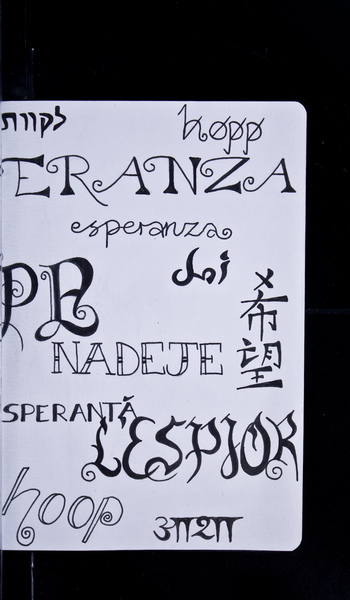 לקוות
hopp
ERANZA
esperanza
أمل
PE
希望
NADEJE
SPERANȚĂ
L'ESPIOR
hoop
आशा